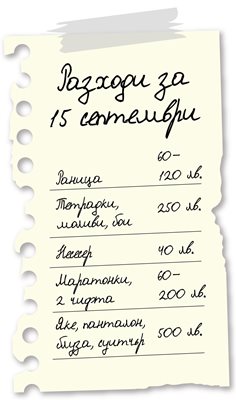 Разходи за
15 септември
60–
Раница 120 лв.
Тетрадки, 250 лв.
моливи, бои
Несесер 40 лв.
Маратонки, 60–
2 чифта 200 лв.
Яке, панталон,
блуза, суитчър 500 лв.